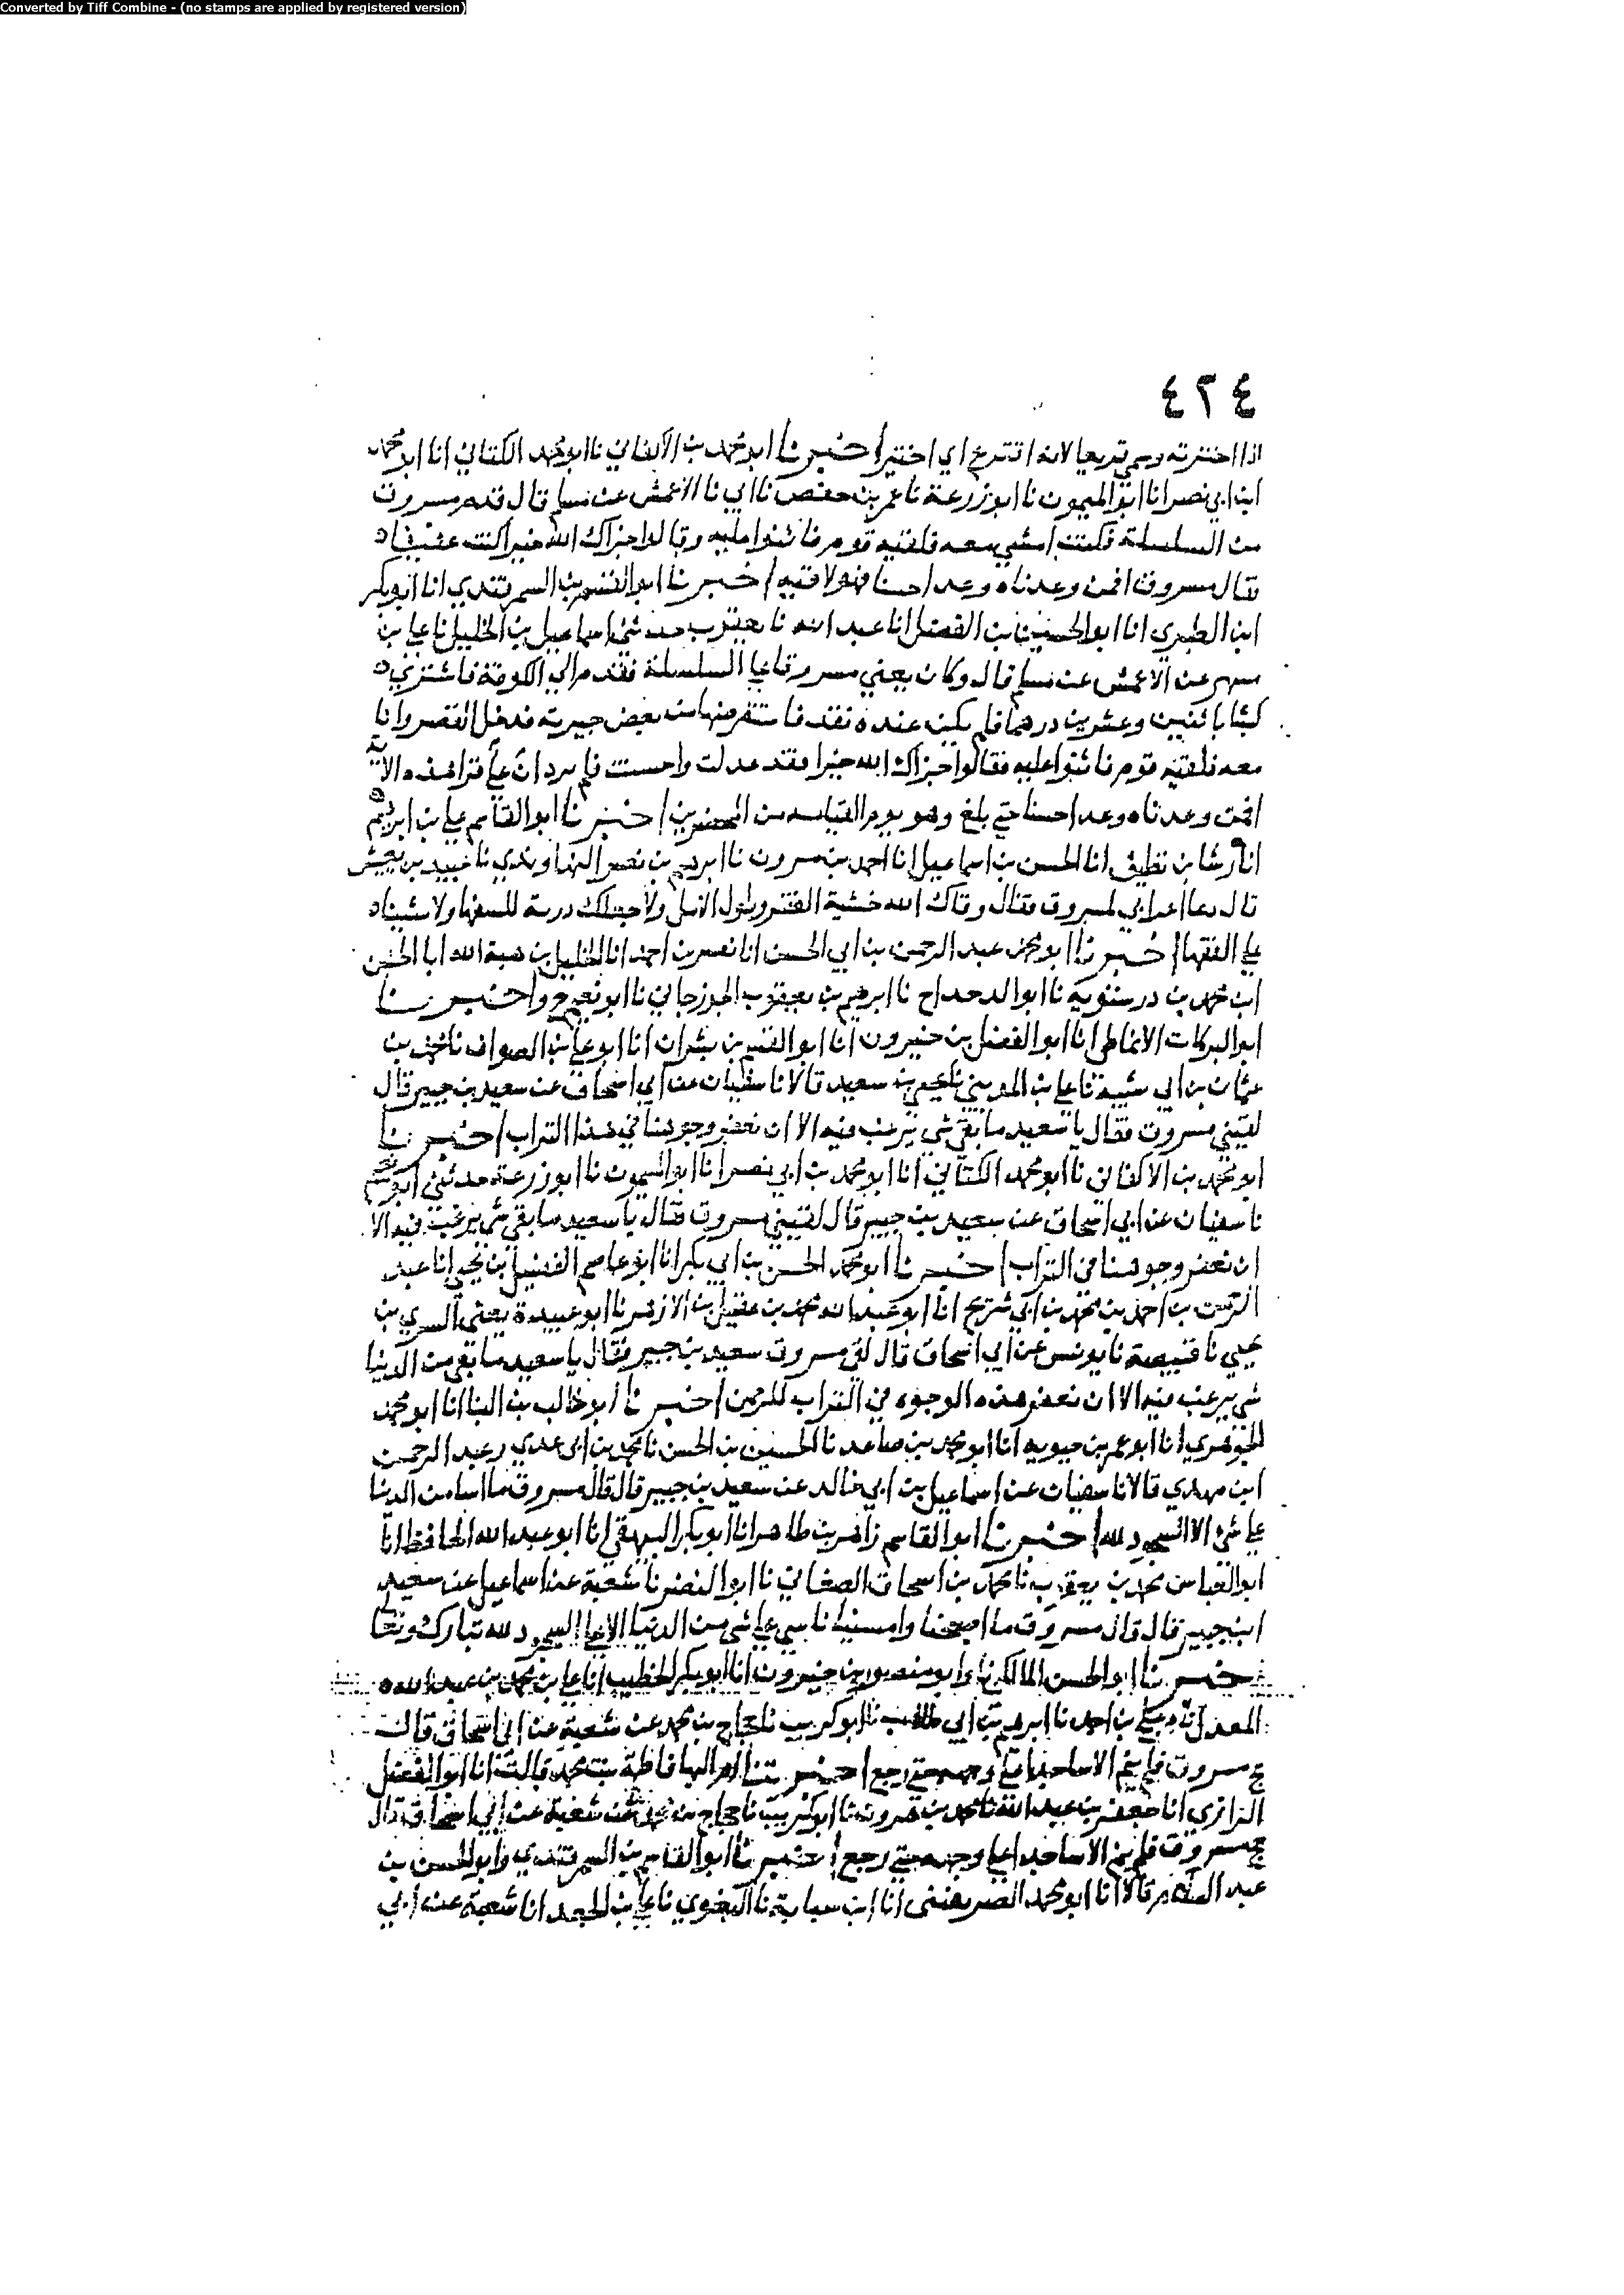 Converted by Tiff Combine - (no stamps are applied by registered version)
٤٢٤
اذا اخترته وسمي قريعا لانه اقترع اي اختير اخبرنا ابو محمد بن الاكفاني نا ابو محمد الكتاني انا ابو محمد
ابن ابي نصر انا ابو الميمون نا ابو زرعة نا عمر بن حفص نا ابي نا الاعمش عن مسلم قال قدم مسروق
من السلسلة فكنت امشي معه فلقيه قوم فاثنوا عليه وقالوا جزاك الله خيرا كنت عفيفا
فقال مسروق افمن وعدناه وعدا حسنا فهو لاقيه اخبرنا ابو القسم بن السمرقندي انا ابو بكر
ابن الطبري انا ابو الحسين بن الفضل انا عبد الله نا يعقوب حدثني اسماعيل بن الخليل نا علي بن
مسهر عن الاعمش عن مسلم قال وكان يعني مسروقا علي السلسلة فقدم الي الكوفة فاشتري
كبشا باثنين وعشرين درهما فلم يكن عنده نقد فاستقرضها من بعض جيرته فدخل القصر وانا
معه فلقيه قوم فاثنوا عليه فقالوا جزاك الله خيرا فقد عدلت واحسنت فلم يرد ان علي قرا هذه الاية
افمن وعدناه وعدا حسنا حتي بلغ وهو يوم القيامة من المحضرين اخبرنا ابو القاسم علي بن ابرهيم
انا رشا بن نظيف انا الحسن بن اسماعيل انا احمد بن مروان نا ابرهيم بن نصر النهاوندي نا عبيد بن يعيش
قال دعا اعرابي لمسروق فقال وقاك الله خشية الفقر وطول الامل ولا جعلك درية للسفها ولا شيناه
علي الفقها اخبرنا ابو محمد عبد الرحمن بن ابي الحسن انا نصر بن احمد انا الخليل بن هبة الله ابا الحسن
ابن محمد بن درستويه نا ابو الدحداح نا ابرهيم بن يعقوب الجوزجاني نا ابو نعيم ح واخبرنا
ابو البركات الانماطي انا ابو الفضل بن خيرون انا ابو القسم بن بشران انا ابو علي بن الصواف نا محمد بن
عثمان بن ابي شيبة نا علي بن المديني نا يحيي بن سعيد قالا نا سفيان عن ابي اسحاق عن سعيد بن جبير قال
لقيني مسروق فقال يا سعيد ما بقي شي يرغب فيه الا ان نعفر وجوهنا في هذا التراب اخبرنا
ابو محمد بن الاكفاني نا ابو محمد الكتاني انا ابو محمد بن ابي نصر انا ابو الميمون نا ابو زرعة حدثني ابو نعيم
نا سفيان عن ابي اسحاق عن سعيد بن جبير قال لقيني مسروق فقال يا سعيد ما بقي شي يرغب فيه الا
ان نعفر وجوهنا في التراب اخبرنا ابو محمد الحسن بن ابي بكر انا ابو عاصم الفضيل بن يحيي انا عبد
الرحمن بن احمد بن محمد بن ابي شريح انا ابو عبد الله محمد بن عقيل بن الازهر نا ابو عبيدة يعني السري بن
يحيي نا قبيصة نا يونس عن ابي اسحاق قال لقي مسروق سعيد بن جبير فقال يا سعيد ما بقي من الدنيا
شي يرغب فيه الا ان نعفر هذه الوجوه في التراب للرحمن اخبرنا ابو غالب بن البنا انا ابو محمد
الجوهري انا ابو عمر بن حيويه انا ابو محمد بن صاعد نا الحسين بن الحسن نا محمد بن ابي عدي وعبد الرحمن
ابن مهدي قالا نا سفيان عن اسماعيل بن ابي خالد عن سعيد بن جبير قال قال مسروق ما اسا من الدنيا
علي شي الا السجود لله اخبرنا ابو القاسم زاهر بن طاهر انا ابو بكر البيهقي انا ابو عبد الله الحافظ انا
ابو العباس محمد بن يعقوب نا محمد بن اسحاق الصغاني نا ابو النضر نا شعبة عن اسماعيل عن سعيد
ابن جبير قال قال مسروق ما اصبحنا وامسينا ناسي علي شي من الدنيا الا علي السجود لله تبارك وتعا
خبرنا ابو الحسن المالكي نا وابو منصور بن خيرون انا ابو بكر الخطيب انا علي بن محمد بن عبد الله
المعدل انا دعلج بن احمد نا ابرهيم بن ابي طالب نا ابو كريب نا حجاج بن محمد عن شعبة عن ابي اسحاق قال
حج مسروق فلم ينم الا ساجدا علي وجهه حتي رجع اخبرتنا ام البها فاطمة بنت محمد قالت انا ابو الفضل
الرازي انا جعفر بن عبد الله نا محمد بن هرون نا ابو كريب نا حجاج بن محمد عن شعبة عن ابي اسحاق قال
حج مسروق فلم ينم الا ساجدا علي وجهه حتي رجع اخبرنا ابو القاسم بن السمرقندي وابو الحسن بن
عبد السلام قالا انا ابو محمد الصريفيني انا ابن حبابة نا البغوي نا علي بن الجعد انا شعبة عن ابي